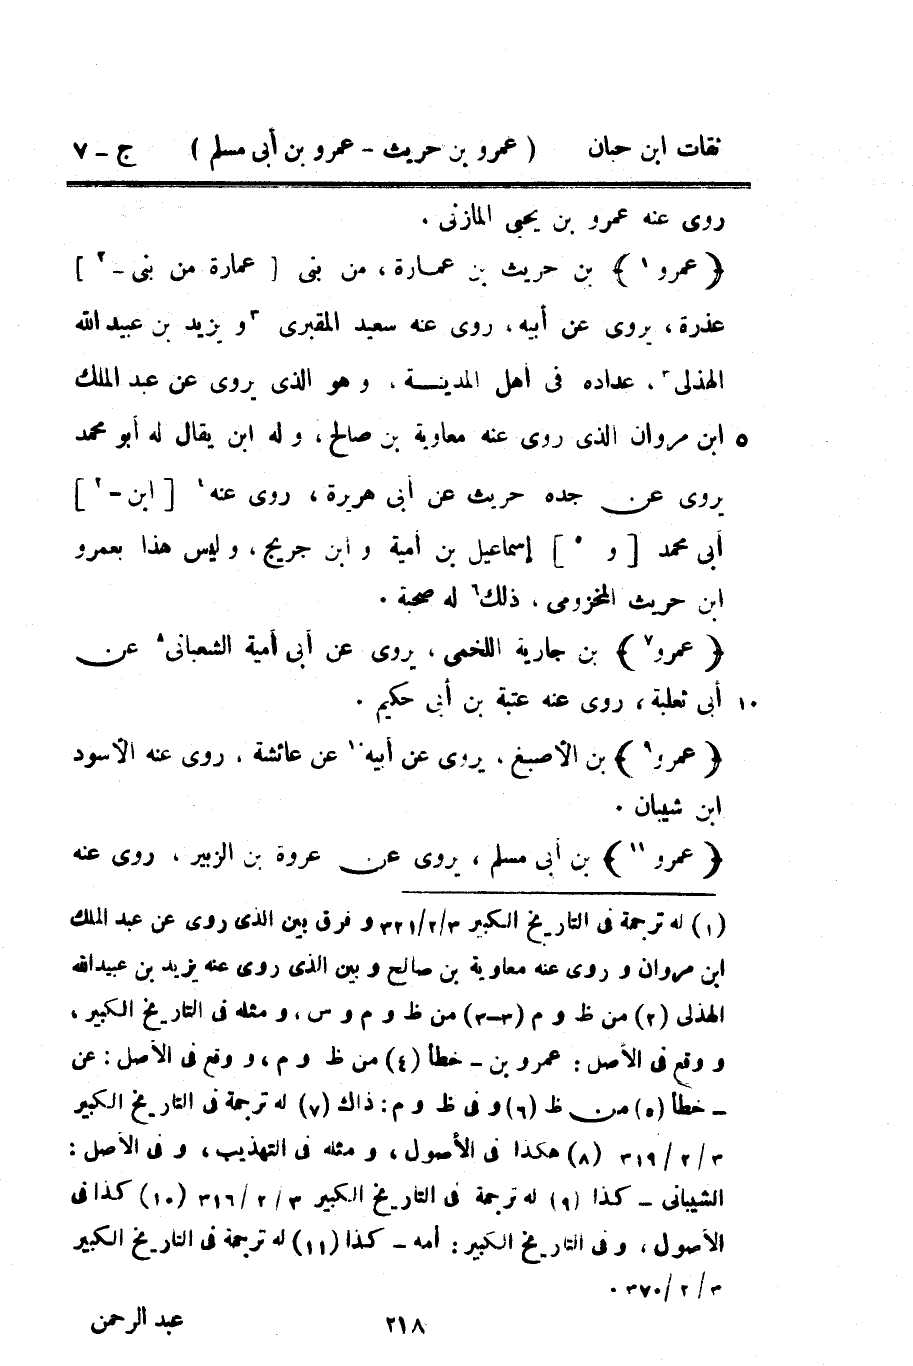 ثقات ابن حبان ( عمرو بن حريث - عمرو بن أبى مسلم ) ج - ٧
روى عنه عمرو بن يحيى المازنى .
﴿ عمرو ١ ﴾ بن حريث بن عمارة ، من بنى [ عمارة من بنى - ٢ ]
عذرة ، يروى عن أبيه ، روى عنه سعيد المقبرى ٣ و يزيد بن عبيد الله
الهذلى ٣ ، عداده فى أهل المدينة ، و هو الذى يروى عن عبد الملك
٥ ابن مروان الذى روى عنه معاوية بن صالح ، و له ابن يقال له أبو محمد
يروى عن جده حريث عن أبى هريرة ، روى عنه ٤ [ ابن - ٢ ]
أبى محمد [ و ٥ ] إسماعيل بن أمية و ابن جريج ، و ليس هذا بعمرو
ابن حريث المخزومى ، ذلك ٦ له صحبة .
﴿ عمرو ٧ ﴾ بن جارية اللخمى ، يروى عن أبى أمية الشعبانى ٨ عن
١٠ أبى ثعلبة ، روى عنه عتبة بن أبى حكيم .
﴿ عمرو ٩ ﴾ بن الأصبغ ، يروى عن أبيه ١٠ عن عائشة ، روى عنه الأسود
ابن شيبان .
﴿ عمرو ١١ ﴾ بن أبى مسلم ، يروى عن عروة بن الزبير ، روى عنه
(١) له ترجمة فى التاريخ الكبير ٣٢١/٢/٣ و فرق بين الذى روى عن عبد الملك
ابن مروان و روى عنه معاوية بن صالح و بين الذى روى عنه يزيد بن عبيد الله
الهذلى (٢) من ظ و م (٣-٣) من ظ و م و س ، و مثله فى التاريخ الكبير ،
و وقع فى الأصل : عمرو بن - خطأ (٤) من ظ و م ، و وقع فى الأصل : عن
- خطأ (٥) من ظ (٦) و فى ظ و م : ذاك (٧) له ترجمة فى التاريخ الكبير
٣١٩/٢/٣ (٨) هكذا فى الأصول ، و مثله فى التهذيب ، و فى الأصل :
الشيبانى - كذا (٩) له ترجمة فى التاريخ الكبير ٣١٦/٢/٣ (١٠) كذا فى
الأصول ، و فى التاريخ الكبير : أمه - كذا (١١) له ترجمة فى التاريخ الكبير
٣٧٠/٢/٣ .
٢١٨ عبد الرحمن